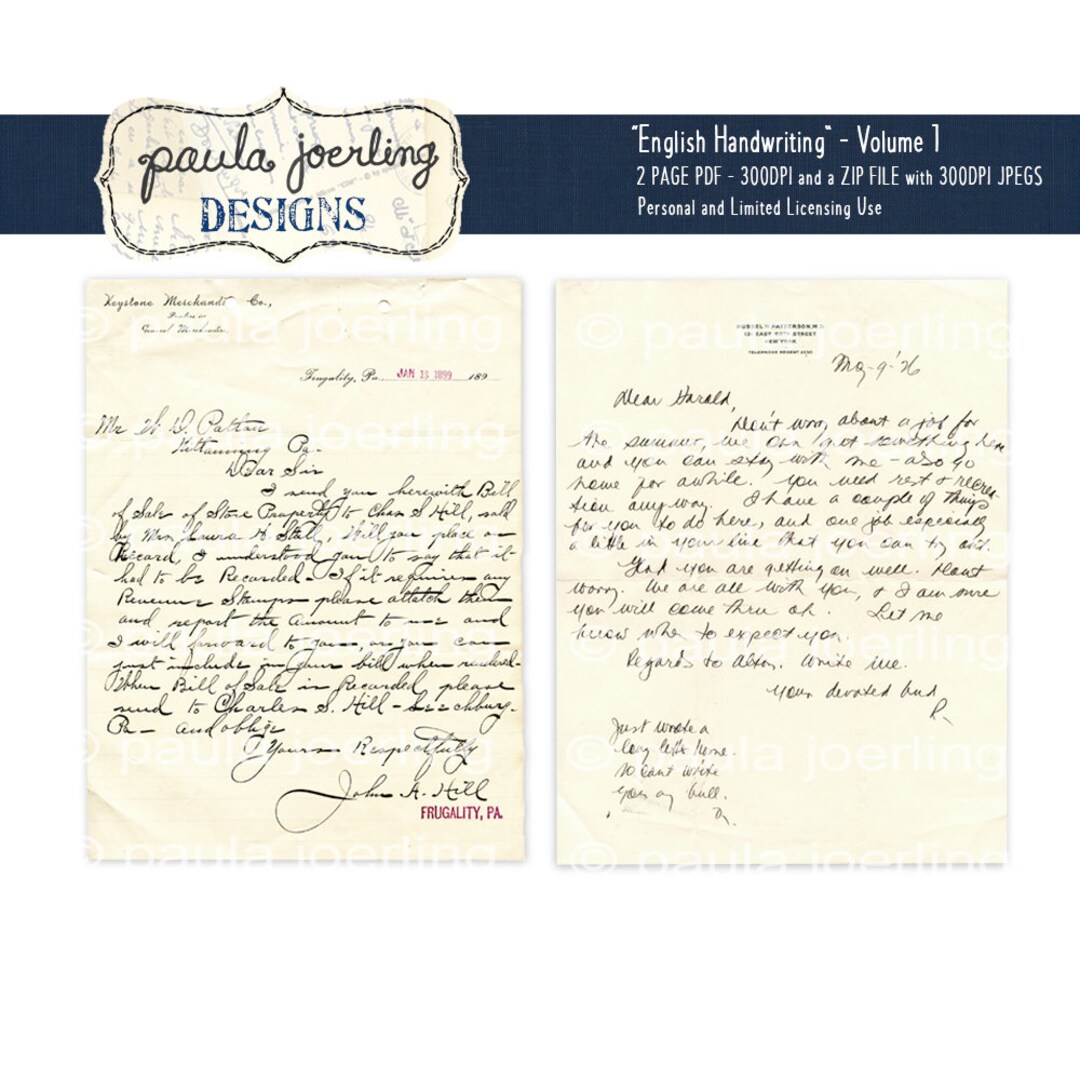 paula joerling
DESIGNS
"English Handwriting" - Volume 1
2 PAGE PDF - 300DPI and a ZIP FILE with 300DPI JPEGS
Personal and Limited Licensing Use
Keystone Merchandise Co.,
General Merchandise
Frugality, Pa. JAN 13 1899 189
Mr W. D. Patton
Kittanning Pa-
Dear Sir
I send you herewith Bill
of Sale of Store Property to Chas S. Hill, sold
by Mrs, Laura H. Stall, Will you place on
Record, I understood you to say that it
had to be Recorded- If it requires any
Revenue Stamps please attatch them
and report the amount to me and
I will forward to you, or you can
just include in your bill when rendered-
When Bill of Sale is Recorded please
send to Charles S. Hill - Leechburg-
Pa- and oblige
Yours Respectfully
John A. Hill
FRUGALITY, PA.
RUSSEL H. PATTERSON, M.D.
EAST STREET
NEW YORK
TELEPHONE REGENT
May-9-'26
Dear Harold,
Don't worry about a job for
the summer, we can get something here
and you can stay with me - also go
home for awhile. You need rest & recrea-
tion anyway. I have a couple of things
for you to do here, and one job especially
a little in your line that you can try out.
Glad you are getting on well. Don't
worry. We are all with you, & I am sure
you will come thru ok. Let me
know when to expect you.
Regards to Alton. Write me.
Your devoted bud
R-
Just wrote a
long letter home.
so cant write
you
© paula joerling
© paula joerling
© paula joerling
© paula joerling
© paula joerling
© paula joerling